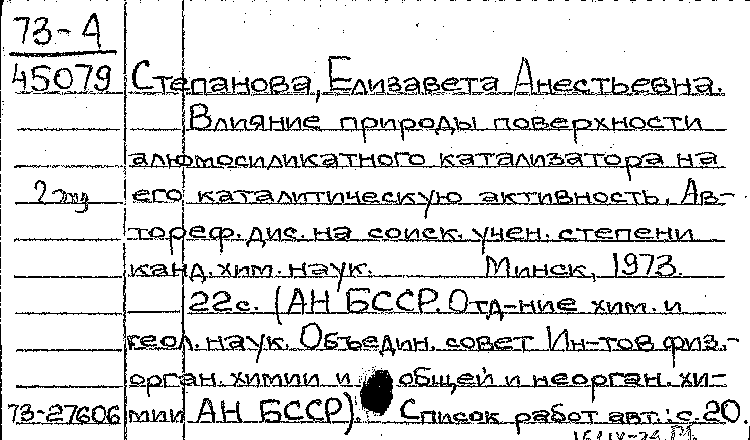 73-А
45079 Степанова, Елизавета Анестьевна.
Влияние природы поверхности
алюмосиликатного катализатора на
2 его каталитическую активность. Ав-
тореф. дис. на соиск. учен. степени
канд. хим. наук. Минск, 1973.
22с. (АН БССР. Отд-ние хим. и
геол. наук. Объедин. совет Ин-тов физ.-
орган. химии и общей и неорган. хи-
73-27606 мии АН БССР). Список работ авт.: с.20.